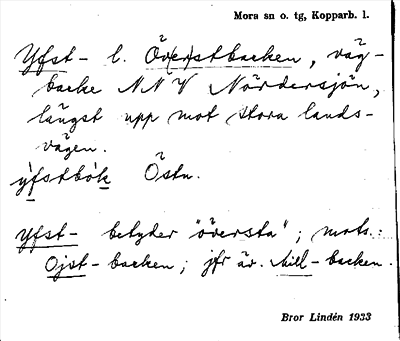 Mora sn o. tg, Kopparb. l.
Yfst- l. Öv(er)stbacken, väg-
backe NNV Nördersjön,
längst upp mot stora lands-
vägen.
ýfstbòk Östn.
Yfst- betyder "översta"; mots.:
Ojst-backen; jfr äv. Mill-backen.
Bror Lindén 1933